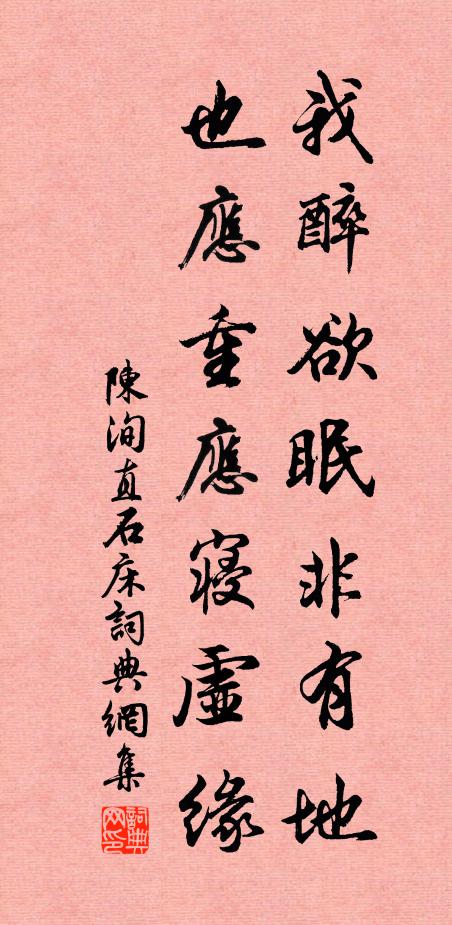 我醉欲眠非有地
也應重應寢虛緣
陳洵直石床詞典網集
詞典网印